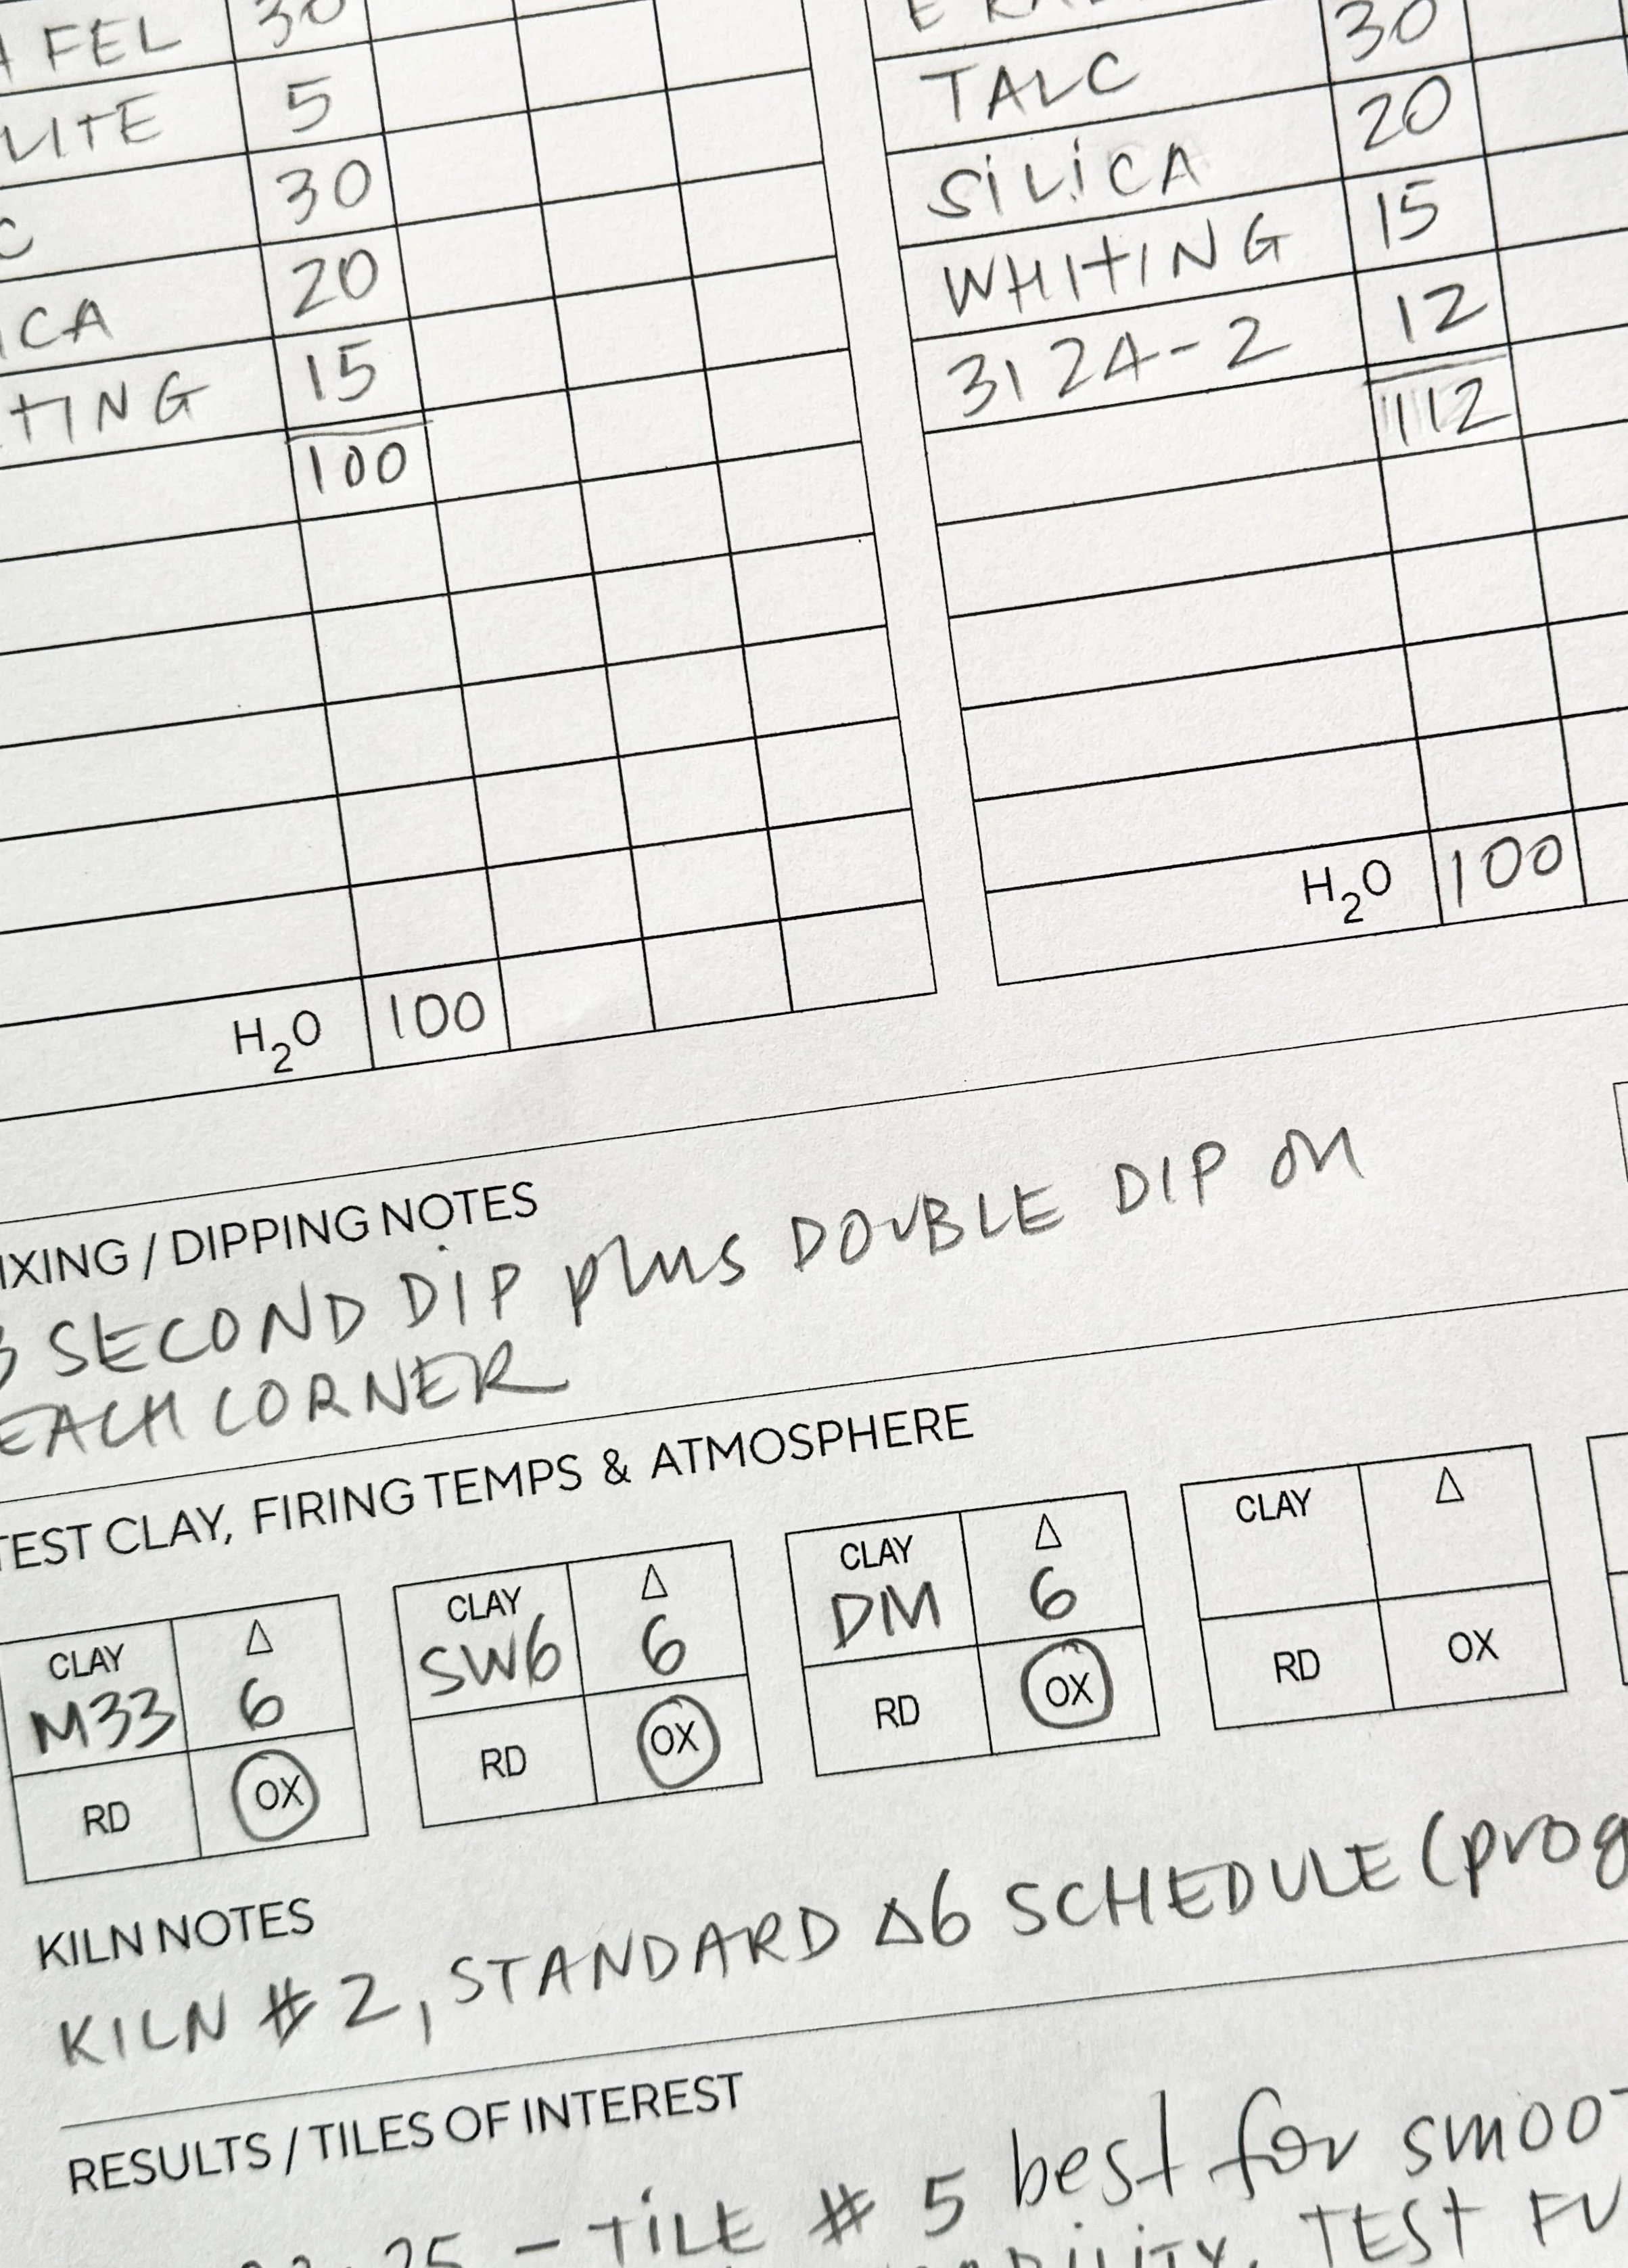 FEL 30
5
30
20
15
100
H₂O 100
30
TALC 20
SILICA 15
WHITING 12
3124-2 112
H₂O 100
DIPPING NOTES
SECOND DIP plus DOUBLE DIP ON
EACH CORNER
TEST CLAY, FIRING TEMPS & ATMOSPHERE
CLAY M33 △ 6 RD OX
CLAY SW6 △ 6 RD OX
CLAY DM △ 6 RD OX
CLAY △ RD OX
KILN NOTES
KILN #2, STANDARD △6 SCHEDULE (prog
RESULTS / TILES OF INTEREST
25 - TILE # 5 best for smoo
TEST FU